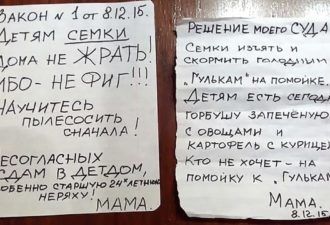 ЗАКОН №1 от 8.12.15.
ДЕТЯМ СЕМКИ
ДОМА НЕ ЖРАТЬ!
ИБО - НЕ ФИГ!!!
НАУЧИТЕСЬ
ПЫЛЕСОСИТЬ
СНАЧАЛА!
НЕСОГЛАСНЫХ
СДАМ В ДЕТДОМ,
ОСОБЕННО СТАРШУЮ 24х ЛЕТНЮЮ
НЕРЯХУ!
МАМА.
РЕШЕНИЕ МОЕГО СУДА
СЕМКИ ИЗЪЯТЬ И
СКОРМИТЬ ГОЛОДНЫМ
„ГУЛЬКАМ" НА ПОМОЙКЕ.
ДЕТЯМ ЕСТЬ СЕГОДНЯ
ГОРБУШУ ЗАПЕЧЁНУЮ
С ОВОЩАМИ И
КАРТОФЕЛЬ С КУРИЦЕЙ
КТО НЕ ХОЧЕТ - НА
ПОМОЙКУ К „ГУЛЬКАМ"
МАМА.
8.12.15